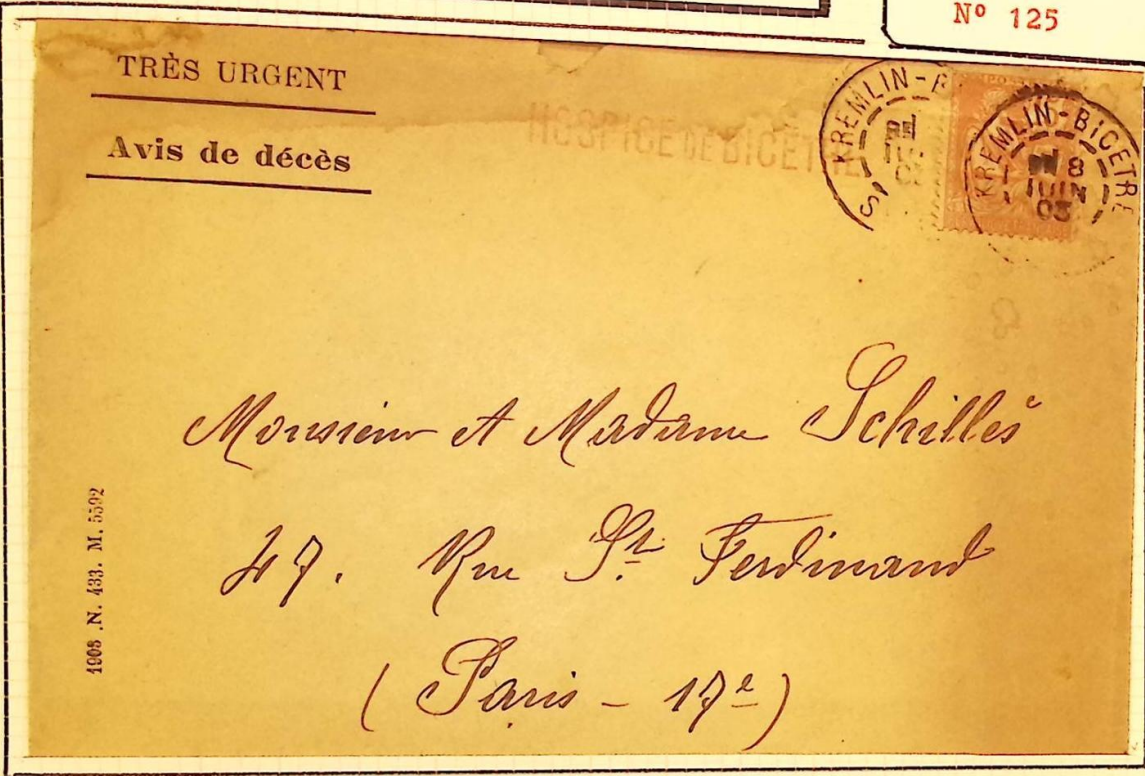 Nº 125
TRÈS URGENT
Avis de décès
HOSPICE DE BICETRE
KREMLIN-B
KREMLIN-BICETRE
8
JUIN
03
Monsieur et Madame Schillès
47. Rue St. Ferdinand
(Paris - 17e)
1903 .N. 433. M. 5592